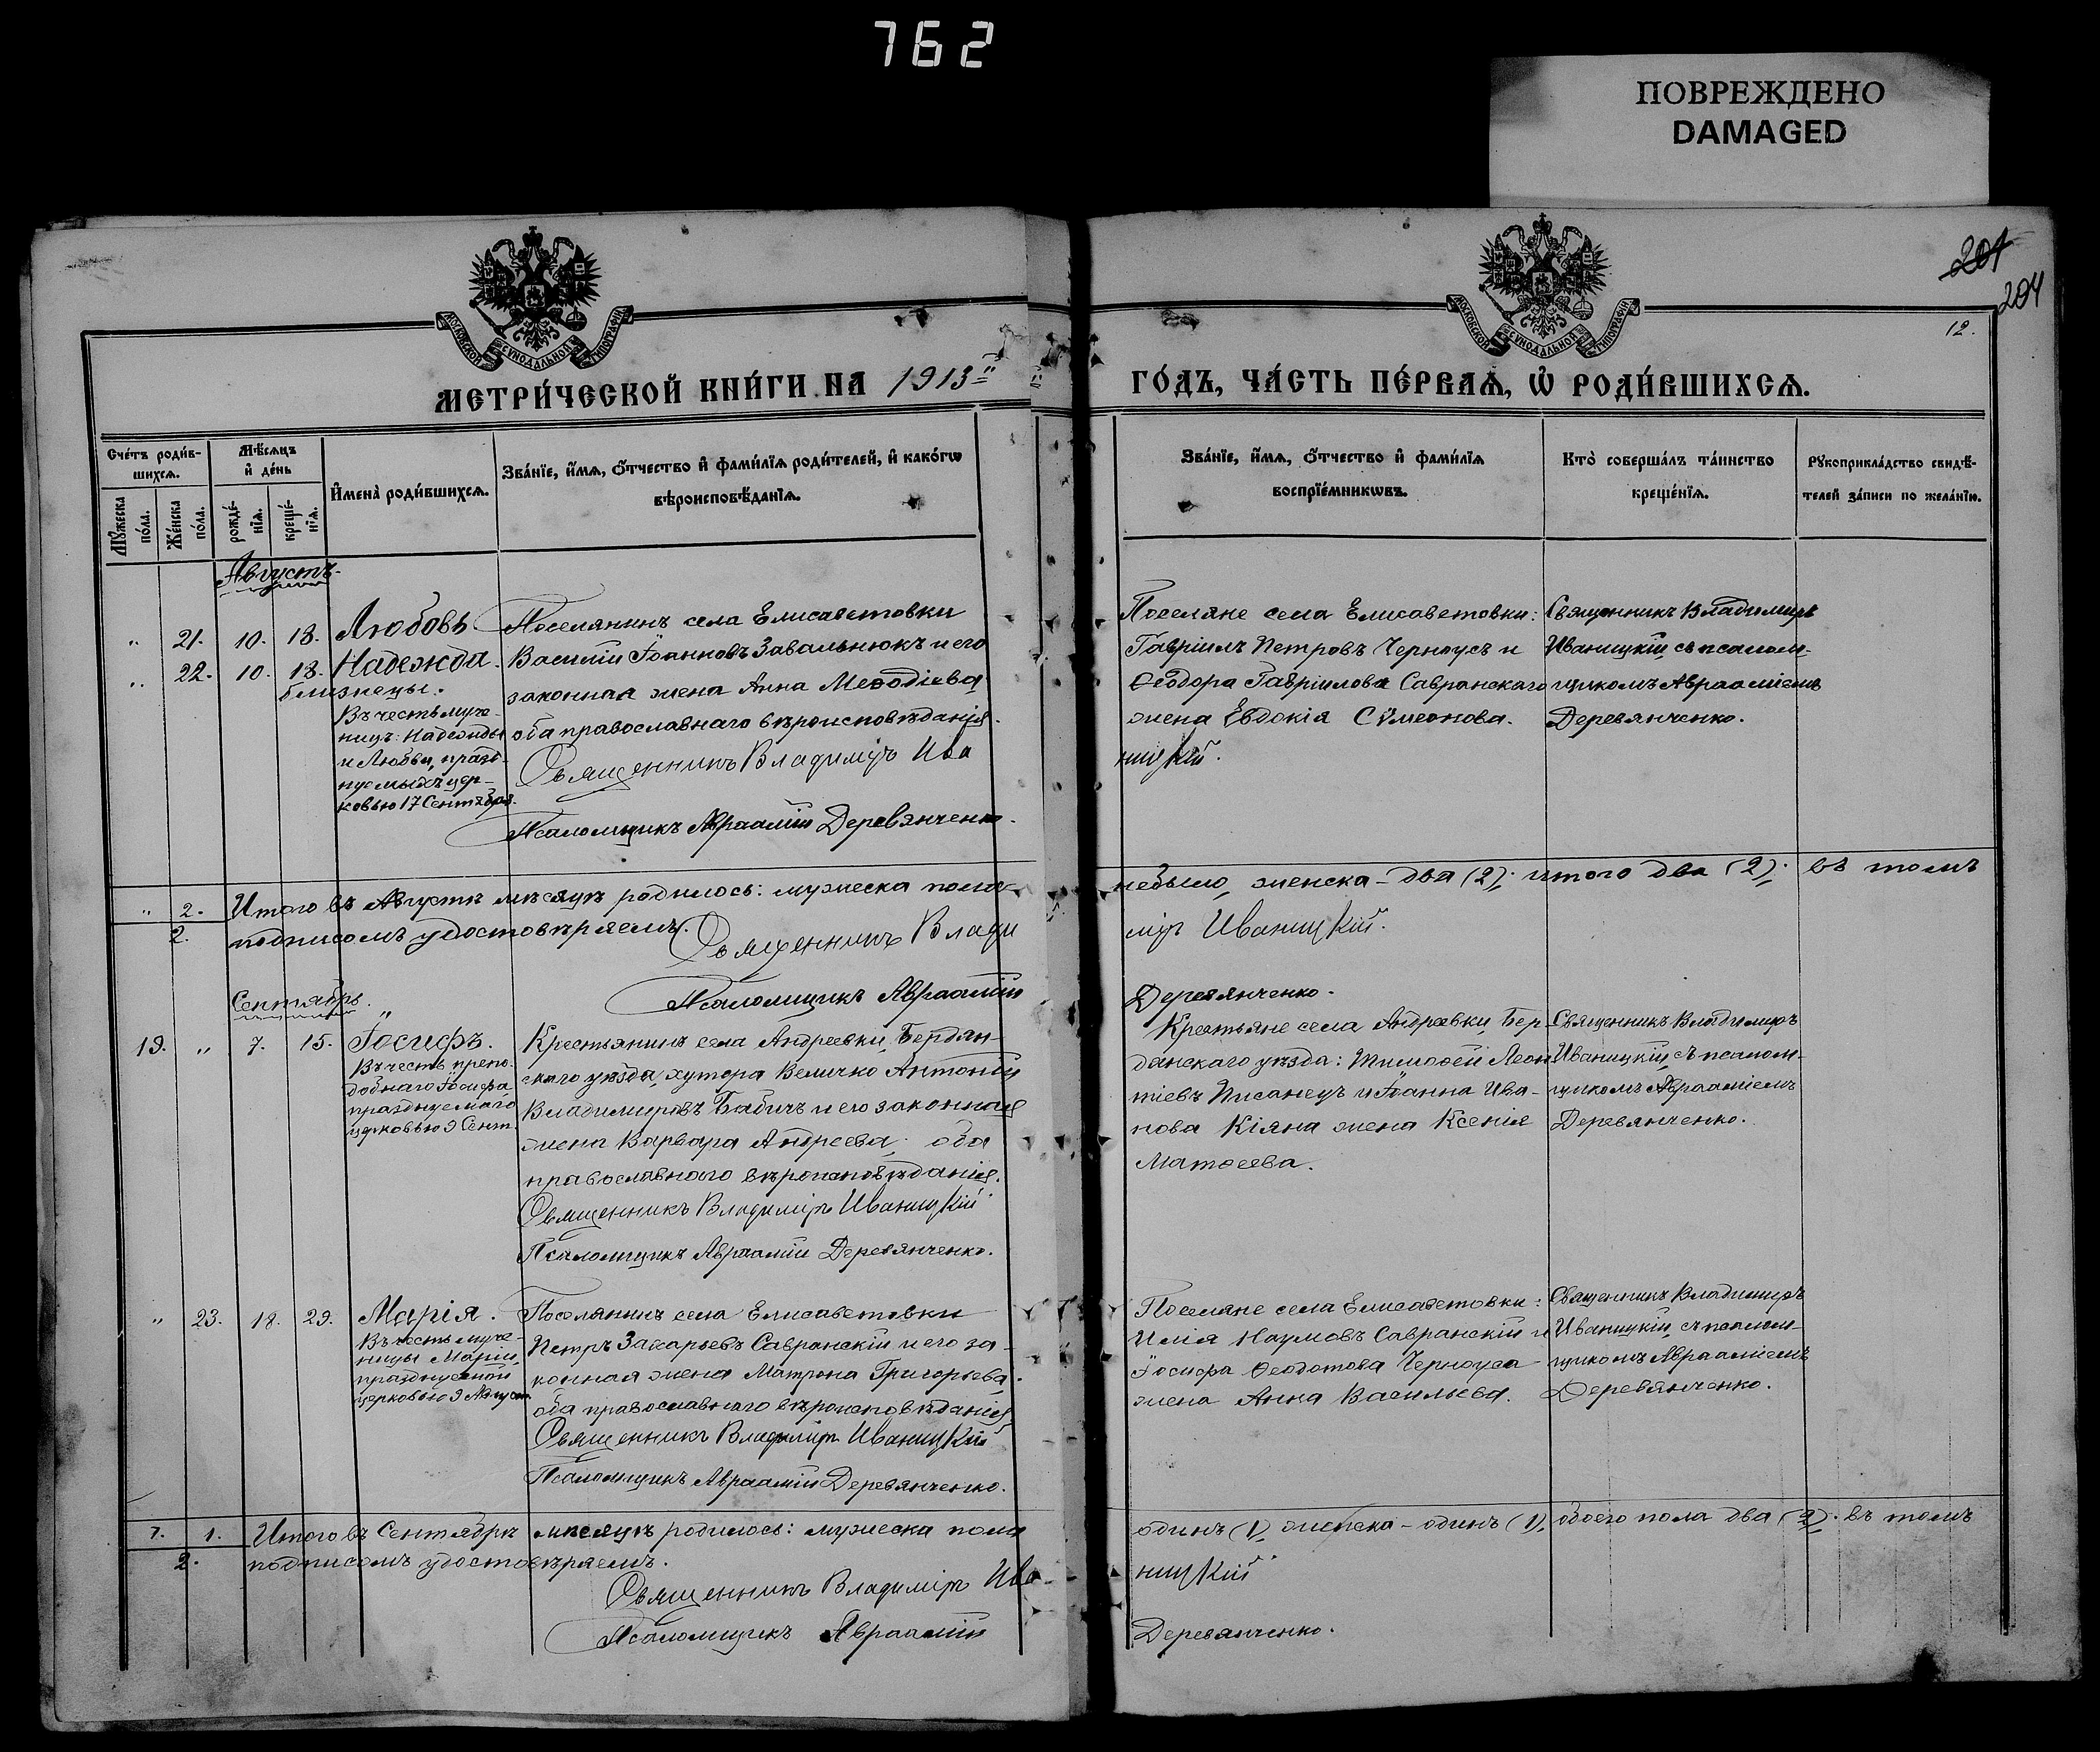 762
ПОВРЕЖДЕНО
DAMAGED
201
204
12.
МОСКОВСКОЙ СѴНОДАЛЬНОЙ ТИПОГРАФІИ
МОСКОВСКОЙ СѴНОДАЛЬНОЙ ТИПОГРАФІИ
МЕТРИ́ЧЕСКОЙ КНИ́ГИ НА 1913й
ГО́ДЪ, ЧА́СТЬ ПЕ́РВАѦ, Ѡ҆ РОДИ́ВШИХСѦ.
Сче́тъ роди́в-
шихсѧ.
Мѣ́сѧцъ
и҆ де́нь
Мꙋ́жеска
по́ла.
Же́нска
по́ла.
рожде́-
нїѧ.
креще́-
нїѧ.
И҆мена̀ роди́вшихсѧ.
Зва́нїе, и҆́мѧ, ѻ҆́тчество и҆ фами́лїѧ роди́телей, и҆ како́гѡ
вѣроисповѣ́данїѧ.
Зва́нїе, и҆́мѧ, ѻ҆́тчество и҆ фами́лїѧ
воспрїе́мникѡвъ.
Кто̀ соверша́лъ та́инство
креще́нїѧ.
Рꙋкоприкла́дство свидѣ́-
телей за́писи по жела́нїю.
Августъ.
" 21. 10. 18. Любовь
" 22. 10. 18. Надежда.
близнецы.
Въ честь муче-
ницъ: Надежды
и Любви, празд-
нуемыхъ цер-
ковью 17 Сентября.
Поселянинъ села Елисаветовки
Василій Іоанновъ Завальнюкъ и его
законная жена Анна Меѳодіева
оба православнаго вѣроисповѣданія.
Священникъ Владиміръ Ива
ницкій.
Псаломщикъ Авраамій Деревянченко.
Поселяне села Елисаветовки:
Гавріилъ Петровъ Черноусъ и
Ѳеодора Гавріилова Савранскаго
жена Евдокія Сѵмеонова.
Священникъ Владиміръ
Иваницкій, съ псалом-
щикомъ Авраамiемъ
Деревянченко.
" 2. Итого въ Августѣ мѣсяцѣ родилось: мужеска пола
небыло, женска - два (2); итого два (2). въ томъ
2. подписомъ удостовѣряемъ.
Священникъ Влади
міръ Иваницкій.
Псаломщикъ Авраамій
Деревянченко.
Сентябрь.
19. " 7. 15. Іосифъ.
Въ честь препо-
добнаго Іосифа
празднуемаго
церковью 9 Сент.
Крестьянинъ села Андреевки, Бердян-
скаго уѣзда, хутора Величко Антоній
Владимировъ Бабичъ и его законная
жена Варвара Андреева, оба
православнаго вѣроисповѣданія.
Священникъ Владиміръ Иваницкій
Псаломщикъ Авраамій Деревянченко.
Крестьяне села Андреевки, Бер-
дянскаго уѣзда: Тимоѳей Леон
тіевъ Писанецъ и Іоанна Ива-
нова Кіяна жена Ксенія
Матѳеева.
Священникъ Владиміръ
Иваницкій, съ псалом-
щикомъ Авраамiемъ
Деревянченко.
" 23. 18. 29. Марія.
Въ честь муче-
ницы Маріи,
празднуемой
церковью 9 Август.
Поселянинъ села Елисаветовки
Петръ Захарьевъ Савранскій и его за-
конная жена Матрона Григорьева,
оба православнаго вѣроисповѣданія
Священникъ Владиміръ Иваницкій
Псаломщикъ Авраамій Деревянченко.
Поселяне села Елисаветовки:
Илія Наумовъ Савранскій и
Іосифа Ѳеодотова Черноуса
жена Анна Васильева.
Священникъ Владиміръ
Иваницкій, съ псалом-
щикомъ Авраамiемъ
Деревянченко.
1. 1. Итого въ Сентябрѣ мѣсяцѣ родилось: мужеска пола
одинъ (1), женска - одинъ (1), обоего пола два (2). въ томъ
2. подписомъ удостовѣряемъ.
Священникъ Владиміръ Ива
ницкій
Псаломщикъ Авраамій
Деревянченко.